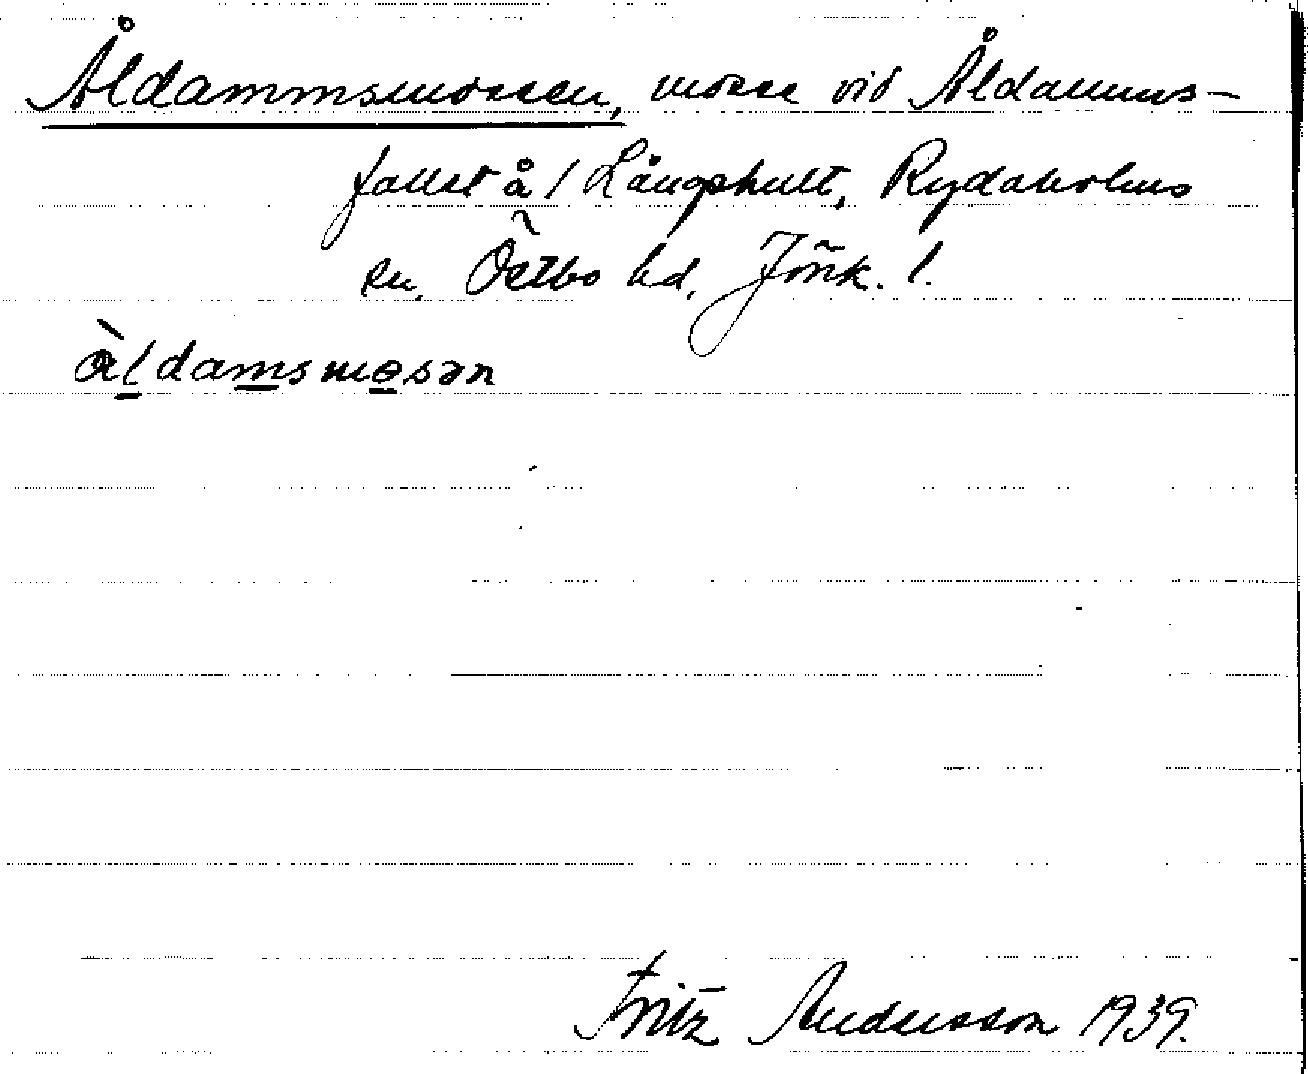 Åldammsmossen, mosse vid Åldamms-
fallet å / Långshult, Rydaholms
sn, Östbo hd, Jönk. l.
àldamsmosən
Fritz Andersson 1939.